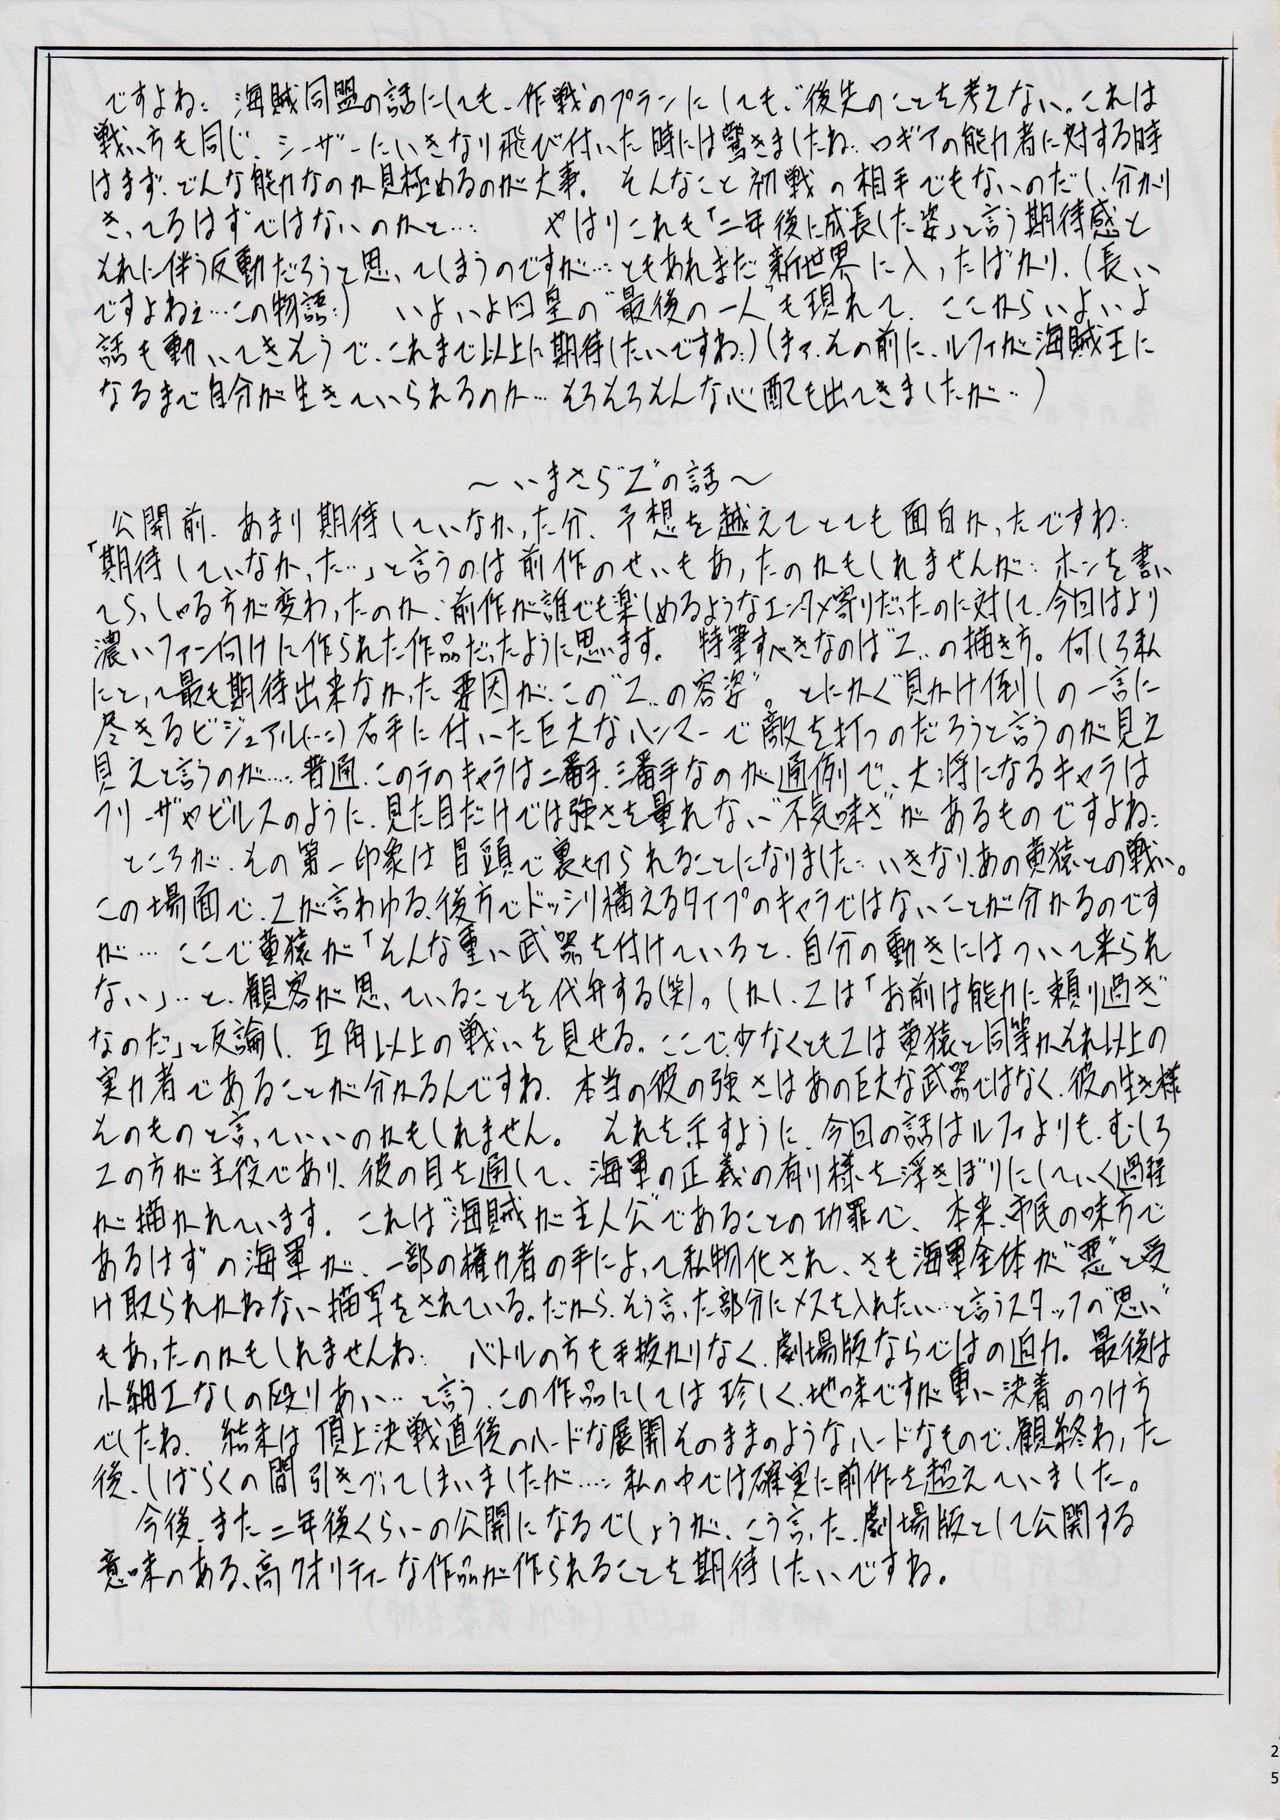 ですよね‥ 海賊同盟の話にしても、作戦のプランにしても、後先のことを考えない。これは
戦い方も同じ、シーザーにいきなり飛び付いた時には驚きましたね‥ ロギアの能力者に対する時
はまず、どんな能力なのか見極めるのが大事。 そんなこと初戦の相手でもないのだし、分かり
きってるはずではないのかと…‥ やはりこれも「二年後に成長した姿」と言う期待感と
それに伴う反動だろうと思ってしまうのですが…‥ともあれまだ新世界に入ったばかり、(長い
ですよねェ…この物語‥) いよいよ四皇の“最後の一人”も現れて、ここからいよいよ
話も動いてきそうで、これまで以上に期待したいですね‥)(まァ、その前に、ルフィが海賊王に
なるまで自分が生きていられるのか…そろそろそんな心配も出てきましたが‥)
～いまさら“Z”の話～
公開前、あまり期待していなかった分、予想を越えてとても面白かったですね‥
「期待していなかった…」と言うのは前作のせいもあったのかもしれませんが‥ ホンを書い
てらっしゃる方が変わったのか‥前作が誰でも楽しめるようなエンタメ寄りだったのに対して、今回はより
濃いファン向けに作られた作品だったように思います。 特筆すべきなのは“Z”の描き方。何しろ私
にとって最も期待出来なかった要因が、この“Z”の容姿”。とにかく“見かけ倒しの一言に
尽きるビジュアル(…‥)右手に付いた巨大なハンマーで敵を打つのだろうと言うのが見え
見えと言うのが…‥普通、このテのキャラは二番手、三番手なのが通例で、大将になるキャラは
フリーザやビルスのように、見た目だけでは強さを量れない“不気味さ”があるものですよね‥
ところが、その第一印象は冒頭で裏切られることになりました‥いきなり、あの黄猿との戦い。
この場面で、Zが言わゆる、後方でドッシリ構えるタイプのキャラではないことが分かるのです
が… ここで黄猿が「そんな重い武器を付けていると、自分の動きにはついて来られ
ない」‥と、観客が思っていることを代弁する(笑)。しかし、Zは「お前は能力に頼り過ぎ
なのだ」と反論し、互角以上の戦いを見せる。ここで、少なくともZは黄猿と同等かそれ以上の
実力者であることが分かるんですね、本当の彼の強さはあの巨大な武器ではなく、彼の生き様
そのものと言っていいのかもしれません。 それを示すように、今回の話はルフィよりも、むしろ
Zの方が主役であり、彼の目を通して、海軍の正義の有り様を浮きぼりにしていく過程
が描かれています。これは“海賊が主人公”であることの功罪で、本来、市民の味方で
あるはずの海軍が、一部の権力者の手によって私物化され、さも海軍全体が“悪”と受
け取られかねない描写をされている。だから、そう言った部分にメスを入れたい…と言うスタッフの“思い”
もあったのかもしれませんね‥ バトルの方も手抜かりなく、劇場版ならではの迫力。最後は
小細工なしの殴りあい…と言う、この作品にしては珍しく、地味ですが重い決着のつけ方
でしたね、結末は頂上決戦直後のハードな展開そのままのようなハードなもので、観終わった
後、しばらくの間引きづってしまいましたが…‥私の中では確実に前作を超えていました。
今後、また二年後くらいの公開になるでしょうが、こう言った、劇場版として公開する
意味のある、高クオリティーな作品が作られることを期待したいですね。
25